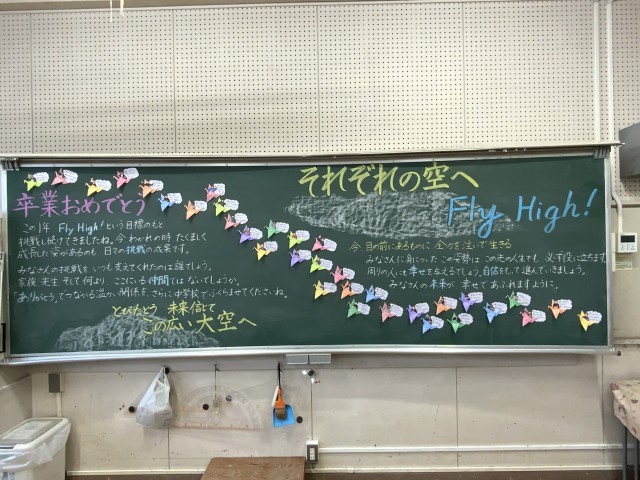 卒業おめでとう
この1年 Fly High! という目標のもと
挑戦し続けてきましたね。今 わかれの時 たくましく
成長した姿があるのも 日々の挑戦の成果です。
みなさんの挑戦を いつも 支えてくれたのは 誰でしょう。
家族 先生 そして 何より ここにいる 仲間では ないでしょうか。
ありがとう。でつながる 温かい 関係を、さらに 中学校で ふくらませてくださいね。
ともだちよ 未来信じて
この広い 大空へ
それぞれの空へ
Fly High!
今 目の前にあるものに 全力を 注いで 生きる
みなさんに 身についた この 姿勢は この先の人生でも 必ず 役に立ちます
周りの人にも 幸せを 与えるでしょう。自信をもって 進んでいきましょう。
みなさんの 未来が 幸せで あふれますように。